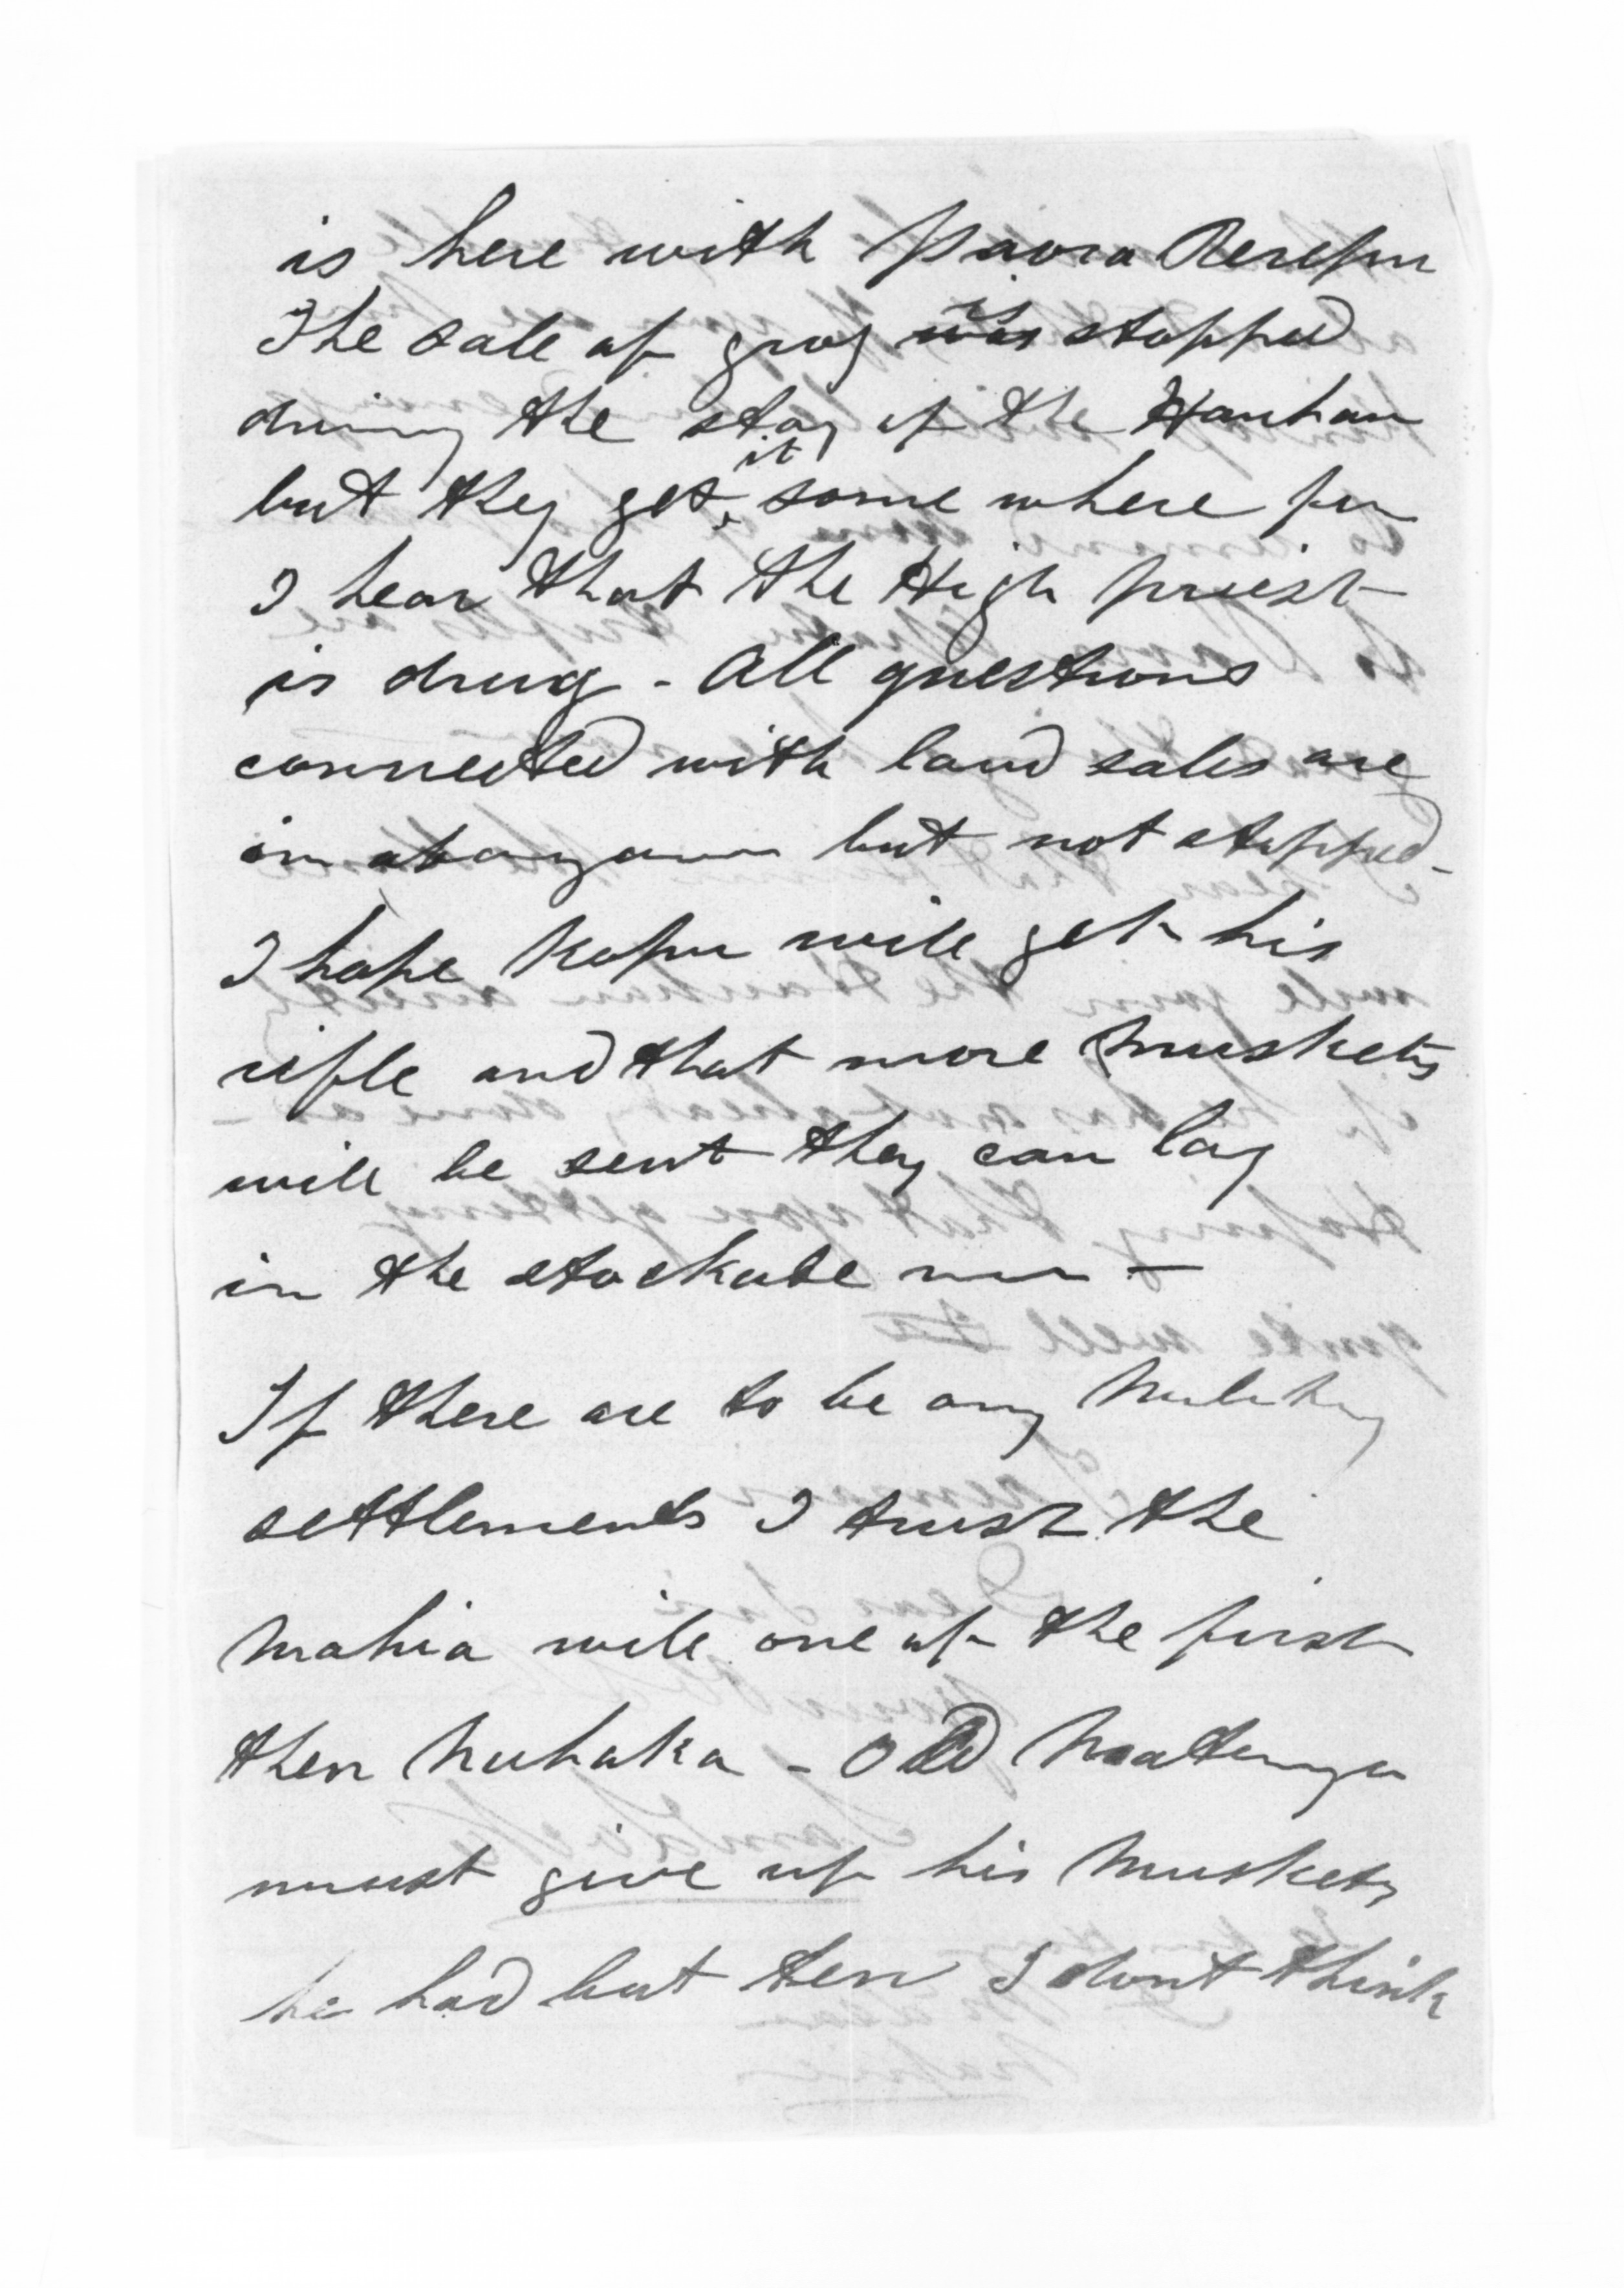 is here with Paora Rerepu
The sale of grog was is stopped
during the stay of the Hauhau
but they get it some where for
I hear that the High priest
is drug - All questions
connected with land sales are
in but not stopped -
I hope Kopu will get his
rifle and that more muskets
will be sent they can lay
in the stockade
If there are to be any Military
settlements I trust the
Mahia will one of the first
then Nuhaka - Old Matenga
must give up his muskets
he had but ten I dont think